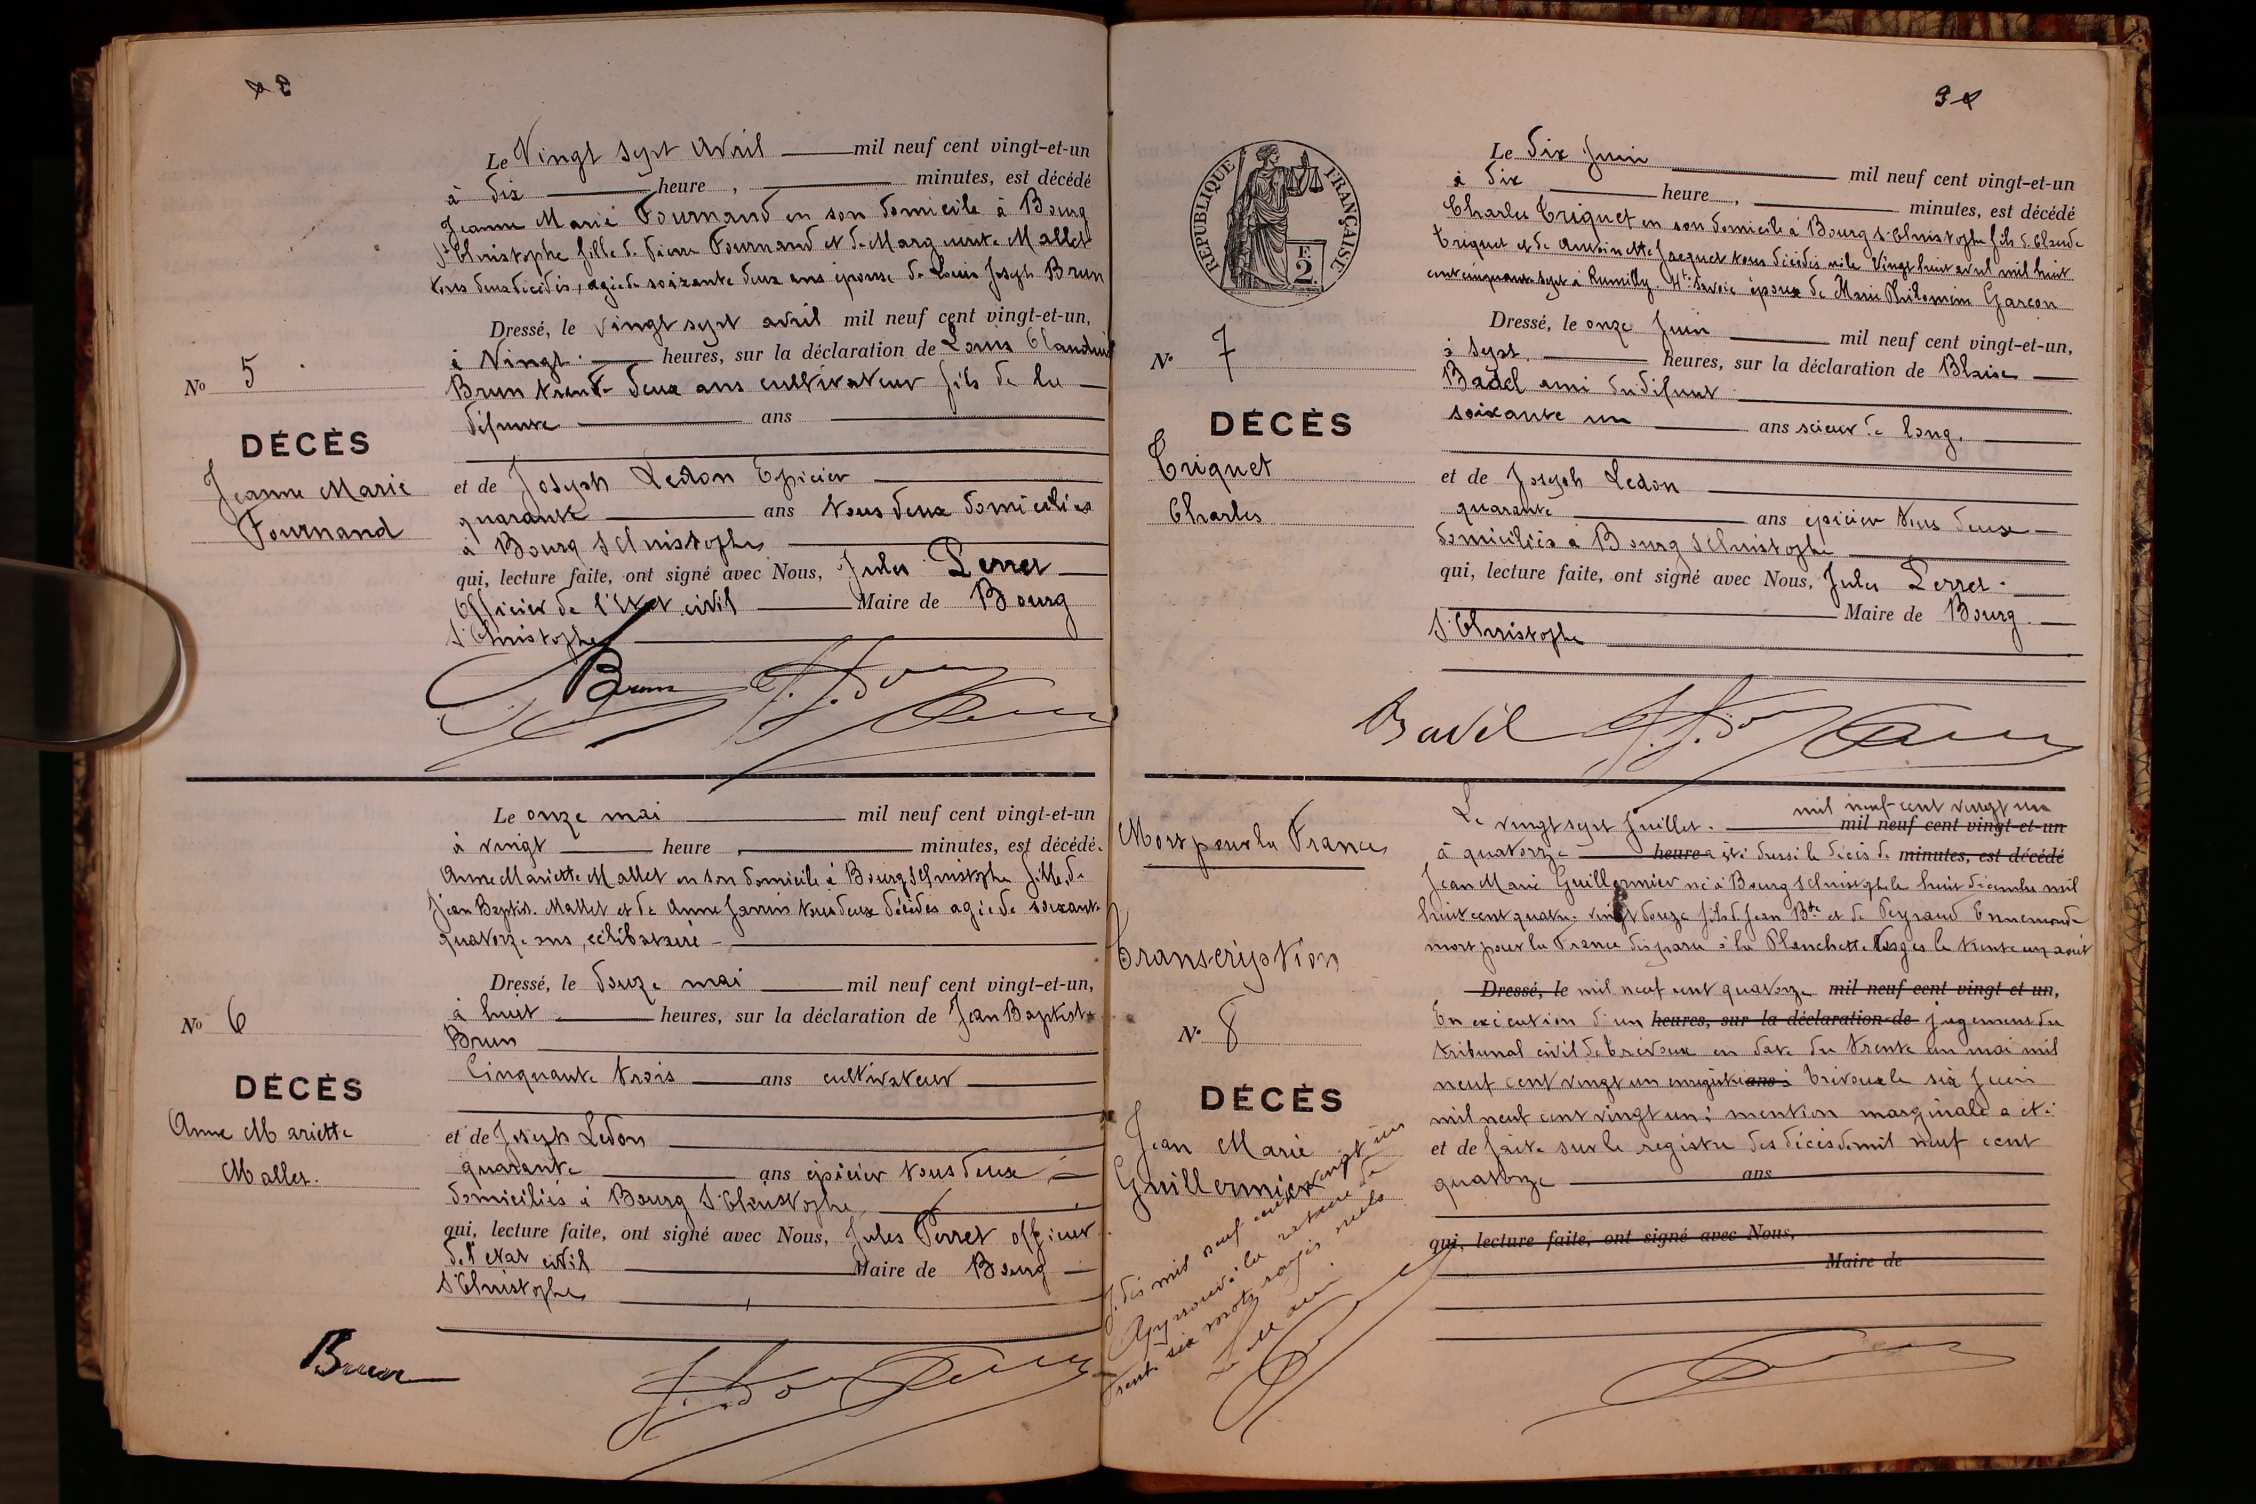 Le Vingt sept Avril mil neuf cent vingt-et-un
à dix heure , minutes, est décédé
Jeanne Marie Fournand en son domicile à Bourg
St Christophe fille de Pierre Fournand et de Marguerite Mallet
tous deux décédés, agée de soixante deux ans épouse de Louis Joseph Brun
Dressé, le vingt sept avril mil neuf cent vingt-et-un,
à Vingt heures, sur la déclaration de Louis Claudius
Brun trente deux ans cultivateur fils de la
défunte ans
No 5
DÉCÈS
Jeanne Marie
Fournand
et de Joseph Ledon Epicier
quarante ans tous deux domiciliés
à Bourg St Christophe
qui, lecture faite, ont signé avec Nous, Jules Perret
Officier de l'Etat civil Maire de Bourg
St Christophe
Brun
Le onze mai mil neuf cent vingt-et-un
à vingt heure , minutes, est décédé
Anne Mariette Mallet en son domicile à Bourg St Christophe fille de
Jean Baptiste Mallet et de Anne tous deux décédés agée de soixante
quatorze ans, célibataire
Dressé, le douze mai mil neuf cent vingt-et-un,
à huit heures, sur la déclaration de Jean Baptiste
Brun
Cinquante trois ans cultivateur
No 6
DÉCÈS
Anne Mariette
Mallet.
et de Joseph Ledon
quarante ans épicier tous deux
domiciliés à Bourg St Christophe
qui, lecture faite, ont signé avec Nous, Jules Perret officier
de l'etat civil Maire de Bourg
St Christophe
Brun
RÉPUBLIQUE FRANÇAISE
F.
2
Le dix Juin mil neuf cent vingt-et-un
à dix heure , minutes, est décédé
Charles Triquet en son domicile à Bourg St Christophe fils de Claude
Triquet et de Antoinette Jacquet tous décédés né le Vingt huit avril mil huit
cent cinquante sept à Rumilly Hte Savoie époux de Marie Philomène Garcon
Dressé, le onze Juin mil neuf cent vingt-et-un,
à sept heures, sur la déclaration de Blaise
Badel ami du défunt
soixante un ans scieur de long.
No 7
DÉCÈS
Triquet
Charles
et de Joseph Ledon
quarante ans épicier tous deux
domiciliés à Bourg St Christophe
qui, lecture faite, ont signé avec Nous, Jules Perret
Maire de Bourg
St Christophe
Badel
Mort pour la France
Transcription
No 8
DÉCÈS
Jean Marie
Guillermier
Le vingt sept Juillet. mil neuf cent vingt un
mil neuf cent vingt-et-un
à quatorze heure a été dressé le décès de minutes, est décédé
Jean Marie Guillermier né à Bourg St Christophe le huit décembre mil
huit cent quatre vingt douze fils de Jean Bte et de Peyraud Ennemonde
mort pour la France disparu à la Planchette Vosges le trente un août
Dressé, le mil neuf cent quatorze mil neuf cent vingt et un,
En exécution d'un heures, sur la déclaration de jugement du
tribunal civil de Trévoux en date du trente un mai mil
neuf cent vingt un enregistré ans à Trévoux le six Juin
mil neuf cent vingt un; mention marginale a été
et de faite sur le registre des décès de mil neuf cent
quatorze ans
qui, lecture faite, ont signé avec Nous,
Maire de
mil neuf cent vingt un
Approuvé la rature de
trente six mots rayés nuls
Le Maire